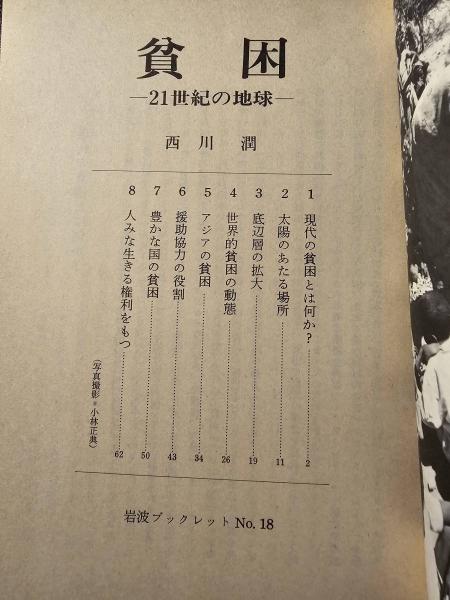 貧困
—21世紀の地球—
西川潤
1 現代の貧困とは何か?……2
2 太陽のあたる場所……11
3 底辺層の拡大……19
4 世界的貧困の動態……26
5 アジアの貧困……34
6 援助協力の役割……43
7 豊かな国の貧困……50
8 人みな生きる権利をもつ……62
(写真撮影=小林正典)
岩波ブックレット No. 18